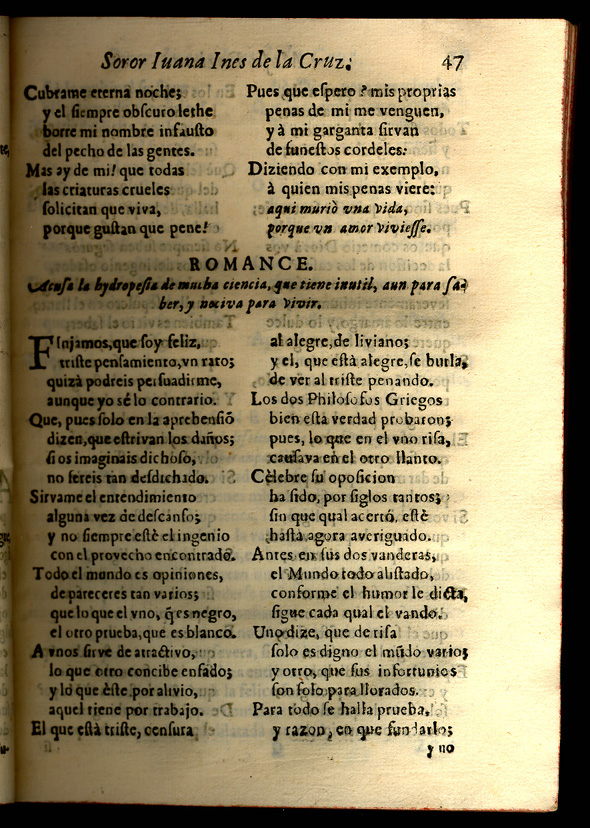 Soror Iuana Ines de la Cruz. 47
Cubrame eterna noche;
y el siempre obscuro lethe
borre mi nombre infausto
del pecho de las gentes.
Mas ay de mi! que todas
las criaturas crueles
solicitan que viva,
porque gustan que pene!
Pues que espero? mis proprias
penas de mi me venguen,
y à mi garganta sirvan
de funestos cordeles:
Diziendo con mi exemplo,
à quien mis penas viere:
aqui muriò vna vida,
porque vn amor viviesse.
ROMANCE.
Acusa la hydropesia de mucha ciencia, que tiene inutil, aun para sa-
ber, y nociva para vivir.
FInjamos, que soy feliz,
triste pensamiento, vn rato;
quizà podreis persuadirme,
aunque yo sé lo contrario.
Que, pues solo en la aprehensiõ
dizen, que estrivan los daños;
si os imaginais dichoso,
no sereis tan desdichado.
Sirvame el entendimiento
alguna vez de descanso;
y no siempre estè el ingenio
con el provecho encontrado.
Todo el mundo es opiniones,
de pareceres tan varios;
que lo que el vno, q̃ es negro,
el otro prueba, que es blanco.
A vnos sirve de atractivo,
lo que otro concibe enfado;
y lo que èste por alivio,
aquel tiene por trabajo.
El que està triste, censura
al alegre, de liviano;
y el, que està alegre, se burla,
de ver al triste penando.
Los dos Philosofos Griegos
bien esta verdad probaron;
pues, lo que en el vno risa,
causava en el otro llanto.
Cèlebre su oposicion
ha sido, por siglos tantos;
sin que qual acertó, estè
hasta agora averiguado.
Antes en sus dos vanderas,
el Mundo todo alistado,
conforme el humor le dicta,
sigue cada qual el vando.
Uno dize, que de risa
solo es digno el mũdo vario;
y otro, que sus infortunios
son solo para llorados.
Para todo se halla prueba,
y razon, en que fundarlo;
y no